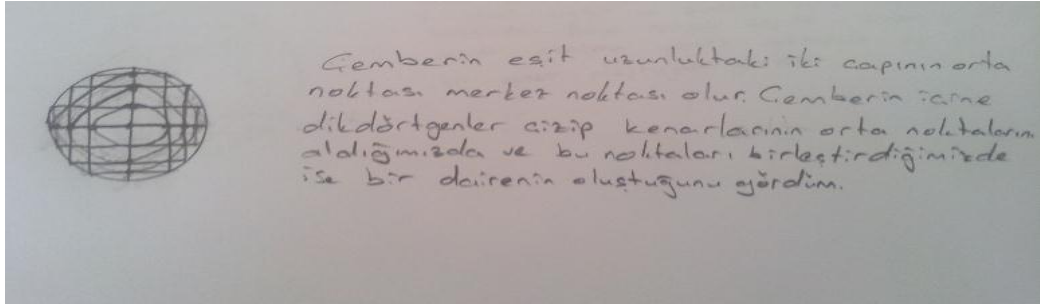 Çemberin eşit uzunluktaki iki çapının orta
noktası merkez noktası olur. Çemberin içine
dikdörtgenler çizip kenarlarının orta noktalarını
aldığımızda ve bu noktaları birleştirdiğimizde
ise bir dairenin oluştuğunu gördüm.